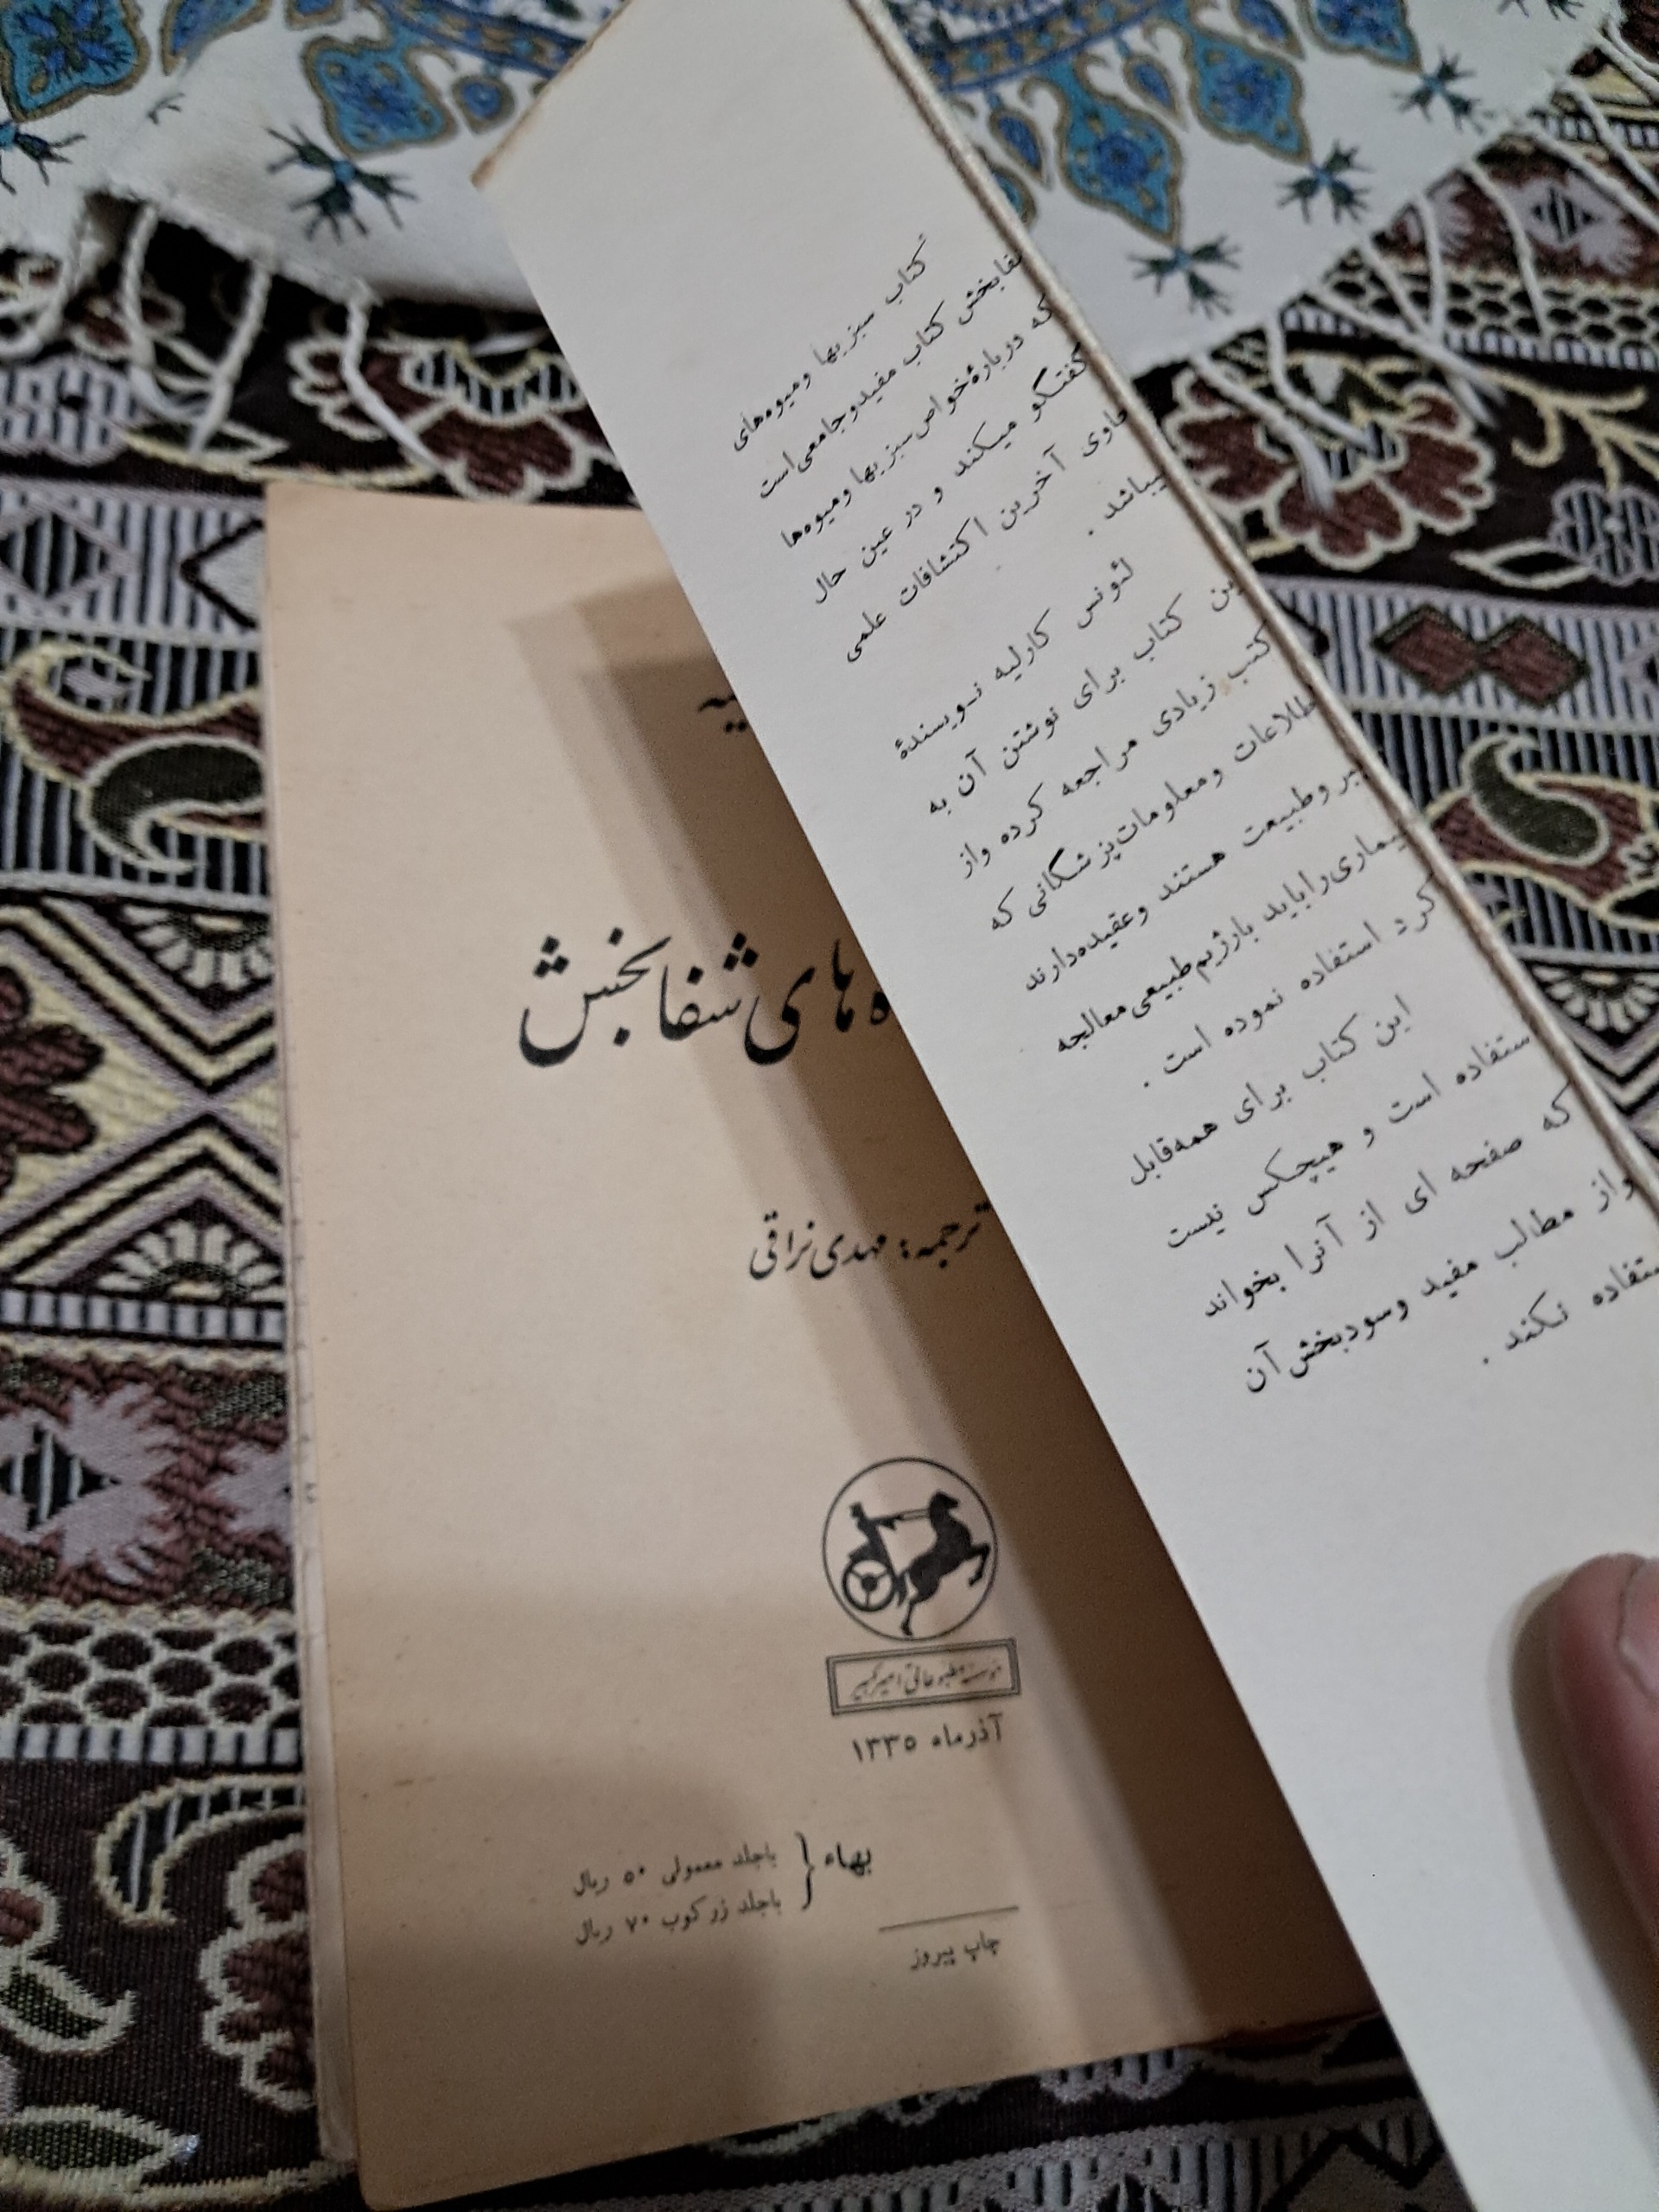 کتاب سبزیها و میوه‌های
شفابخش کتاب مفید و جامعی است
که دربارهٔ خواص سبزیها و میوه‌ها
گفتگو میکند و در عین حال
حاوی آخرین اکتشافات علمی
میباشد .
لئونس کارلیه نویسندهٔ
این کتاب برای نوشتن آن به
کتب زیادی مراجعه کرده و از
اطلاعات و معلومات پزشگانی که
پیر و طبیعت هستند و عقیده دارند
بیماری را باید با رژیم طبیعی معالجه
کرد استفاده نموده است .
این کتاب برای همه قابل
استفاده است و هیچکس نیست
که صفحه ای از آنرا بخواند
و از مطالب مفید و سودبخش آن
استفاده نکند .
یه
ه های شفابخش
ترجمه : مهدی نراقی
موسسه مطبوعاتی امیرکبیر
آذرماه ۱۳۳۵
بهاء
باجلد معمولی ۵۰ ریال
باجلد زرکوب ۷۰ ریال
چاپ پیروز